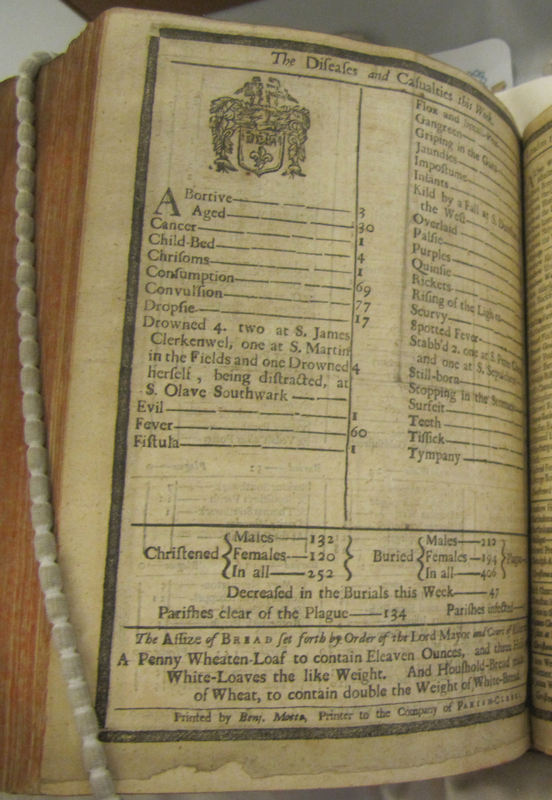 The Diſeaſes and Caſualties this Week.
ABortive 3
Aged 30
Cancer 1
Child-Bed 4
Chriſoms 1
Conſumption 69
Convulſion 77
Dropſie 17
Drowned 4. two at S. James
Clerkenwel, one at S. Martin
in the Fields and one Drowned 4
herſelf, being diſtracted, at
S. Olave Southwark
Evil 1
Fever 60
Fiſtula 1
Flox and
Gangreen
Griping in the Guts
Jaundies
Impoſtume
Infants
Kild by a Fall at S.
the Weſt
Overlaid
Palſie
Purples
Quinſie
Rickets
Riſing of the Lights
Scurvy
Spotted Fever
Stabb'd 2. one at S.
and one at S.
Still-born
Stopping in the
Surfeit
Teeth
Tiſſick
Tympany
Chriſtened { Males 132 Females 120 In all 252 }
Buried { Males 212 Females 194 In all 406 }
Decreaſed in the Burials this Week 47
Pariſhes clear of the Plague 134 Pariſhes infected
The Aſſize of BREAD ſet forth by Order of the Lord Mayor and Court of
A Penny Wheaten-Loaf to contain Eleaven Ounces, and three
White-Loaves the like Weight. And Houſhold-Bread
of Wheat, to contain double the Weight of White-Bread.
Printed by Benj. Motte, Printer to the Company of